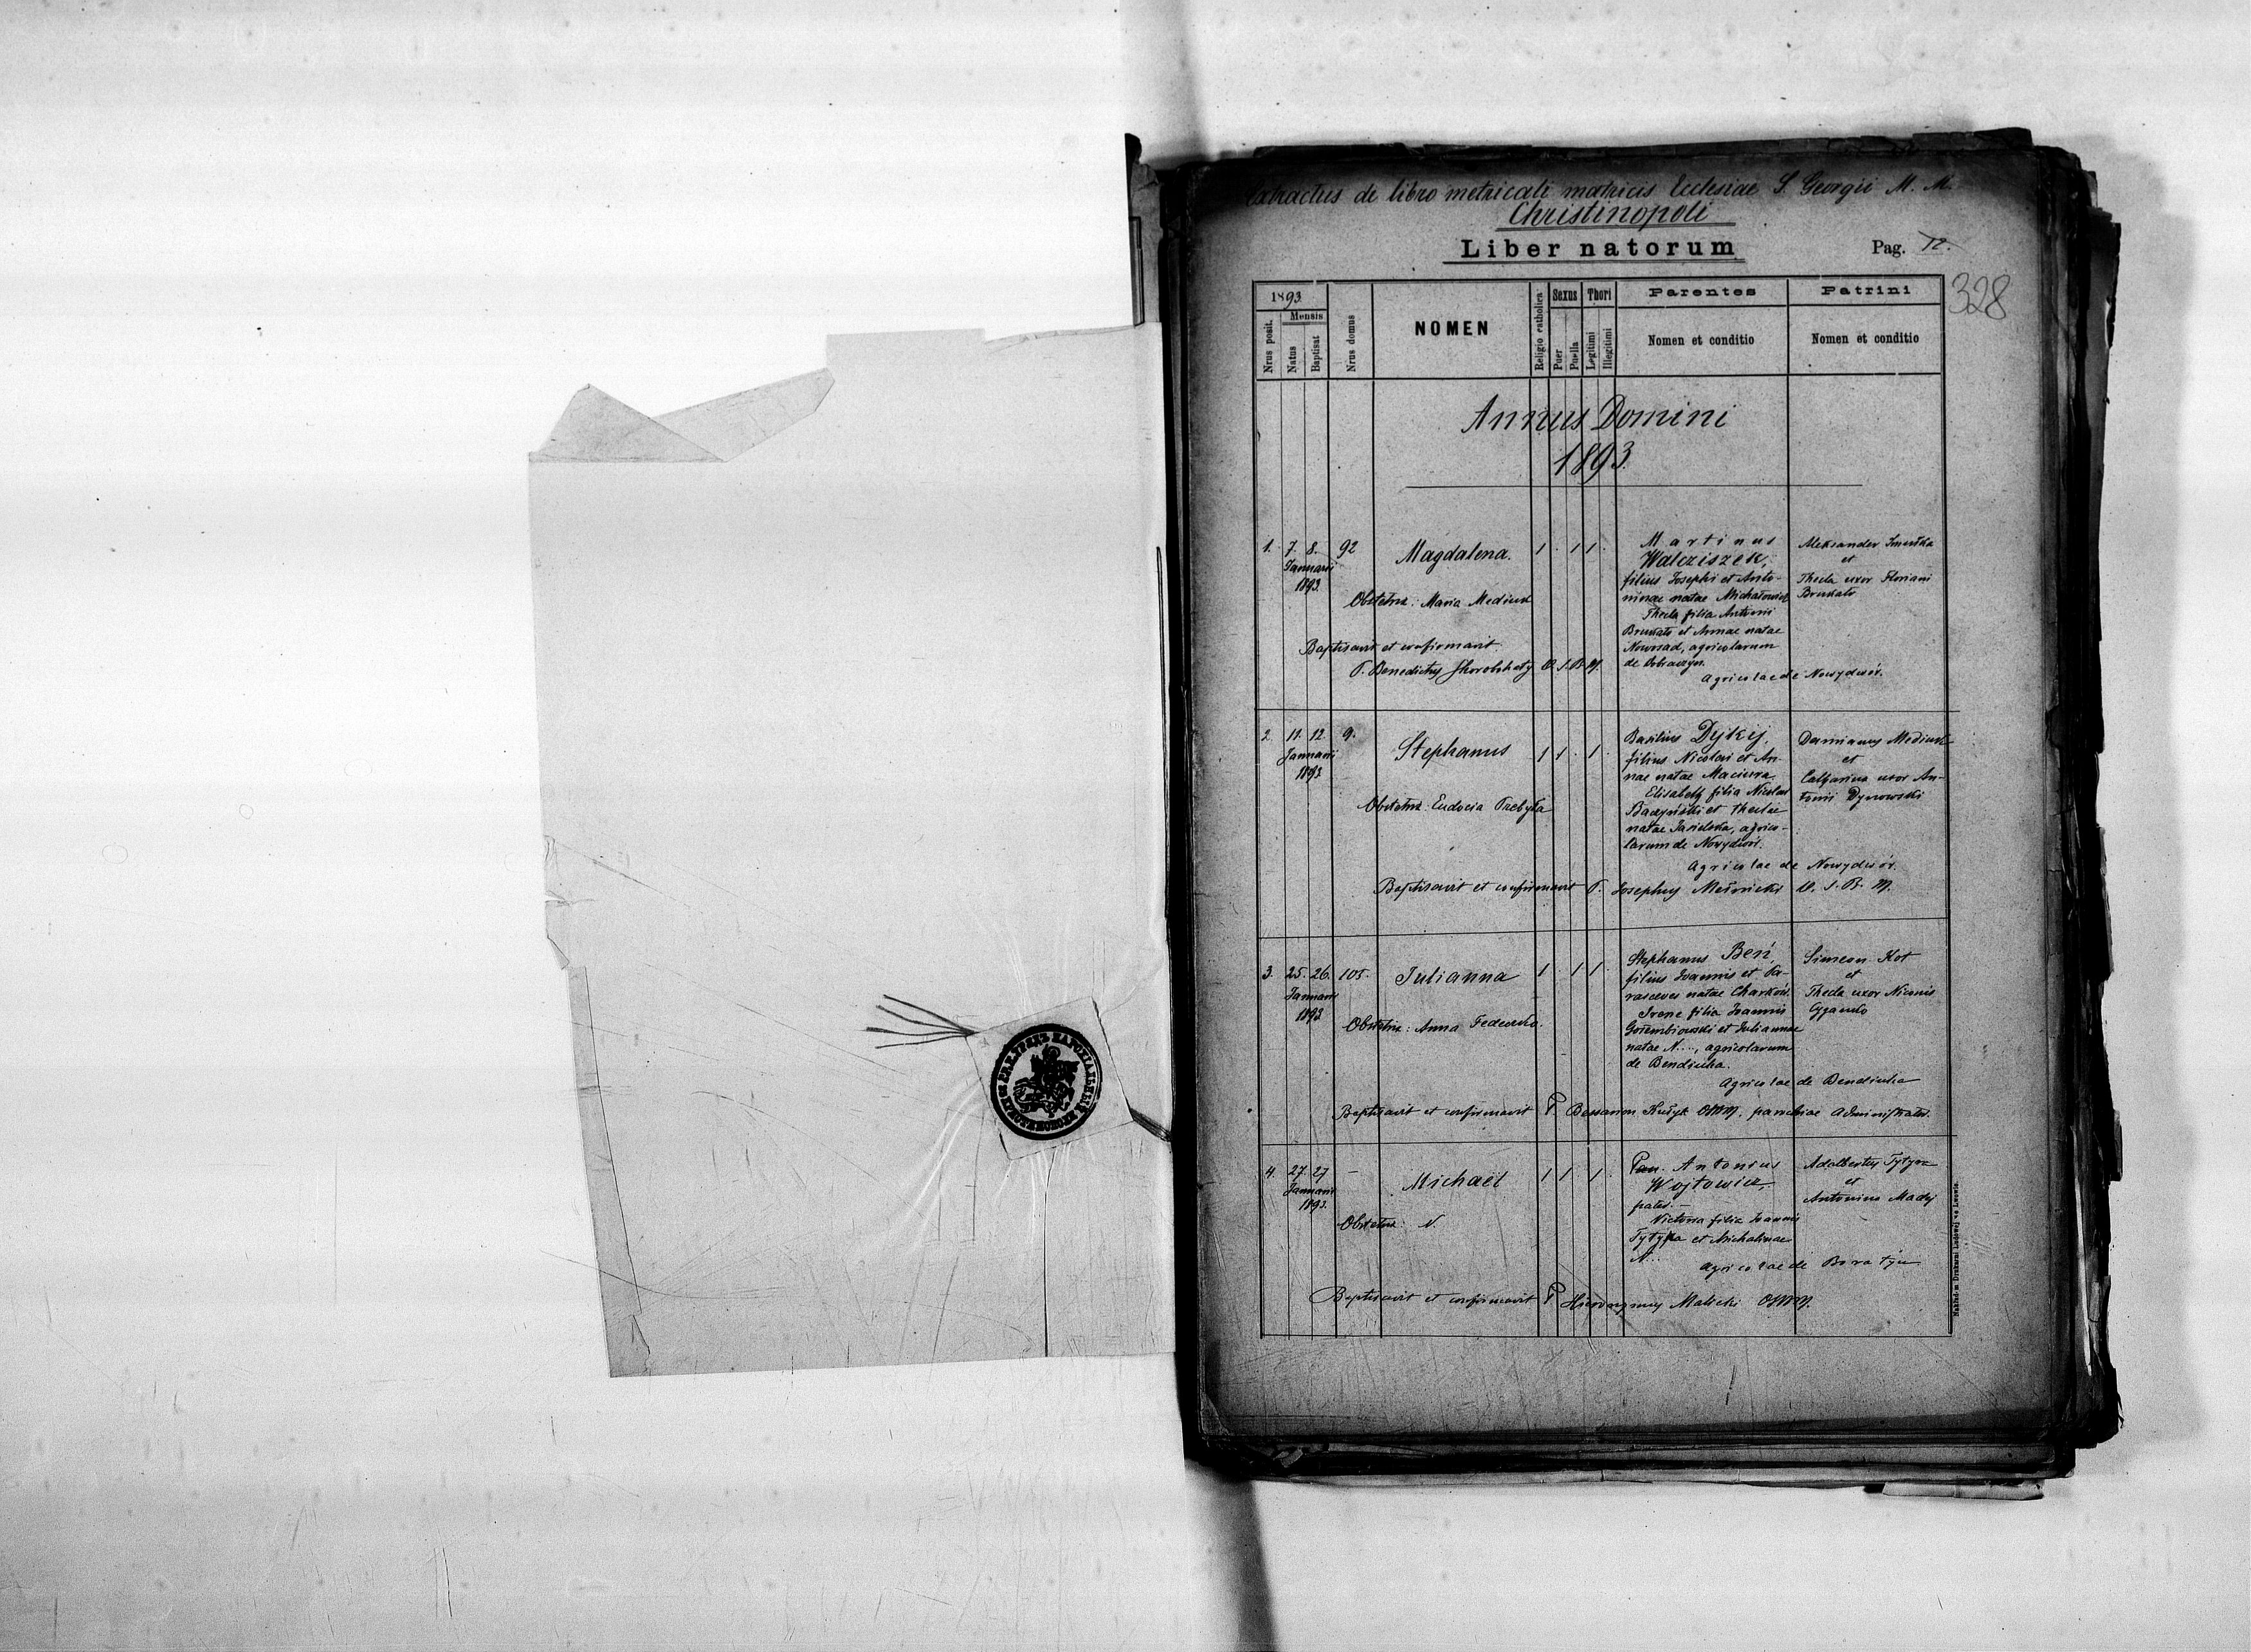 Extractus de libro metricali matricis Ecclesiae S. Georgii M. M.
Christinopoli
Liber natorum
Pag. 72.
328
1893
Mensis
Nrus posit.
Natus
Baptisat
Nrus domus
NOMEN
Religio catholica
Sexus
Puer
Puella
Thori
Legitimi
Illegitimi
Parentes
Nomen et conditio
Patrini
Nomen et conditio
Annus Domini
1893.
1. 7. 8. 92 Magdalena. 1 . 1 1 .
Januarii
1893.
Obstetrix: Maria Mediuch
Baptisavit et confirmavit
P. Benedictus O. S. B. M.
Martinus
Walcziszek,
filius Josephi et Anto-
ninae natae Michałowicz
Thecla filia Antonii
Brukało et Annae natae
Nowosad, agricolarum
de
Agricolae de Nowydwór.
Aleksander
et
Thecla uxor Floriani
Brukało
2 11. 12. 9. Stephanus 1 1 . 1 .
Januarii
1893
Obstetrix: Eudocia
Basilius Dykij,
filius Nicolai et An-
nae natae Maciura
Elisabeth filia Nicolai
Baczyński et Theclae
natae Jasielska, agrico-
larum de Nowydwór.
Agricolae de Nowydwór.
Baptisavit et confirmavit P. Josephus O. S. B. M.
Damianus Mediuch
et
Catharina uxor An-
tonii Dynowski
3. 25. 26. 105. Julianna 1 . 1 1 .
Januarii
1893
Obstetrix: Anna Fedeczko.
Stephanus Beń,
filius Joannis et Pa-
rasceves natae Charków.
Irene filia Joannis
Gołembiowski et Juliannae
natae N...., agricolarum
de Bendiucha.
Agricolae de Bendiucha
Baptisavit et confirmavit P Bessarion OSBM. parochiae Administrator.
Simeon Kot
et
Thecla uxor Niconis
4. 27 27 – Michaël 1 1 . 1 .
Januarii
1893.
Obstetrix: N.
Antonius
Wojtowicz,
pater. –
Victoria filia Joannis
et Michalinae
N...
Agricolae de Boratyn
Baptisavit et confirmavit P Hieronymus Malicki OSBM.
Adalbertus
et
Antonina Madej
Nakład Drukarni Ludowej we Lwowie.